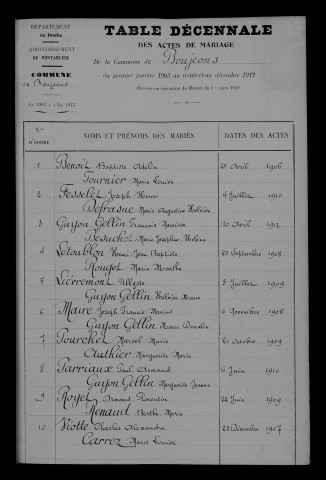 DÉPARTEMENT
du Doubs
ARRONDISSEMENT
DE PONTARLIER
COMMUNE
de Boujeons
De 1903 à fin 1912
TABLE DÉCENNALE
DES ACTES DE MARIAGE
De la Commune de Boujeons
du premier janvier 1903 au trente-et-un décembre 1912
Dressée en exécution du Décret du
Nos D'ORDRE
NOMS ET PRÉNOMS DES MARIÉS
DATES DES ACTES
1 Benoit Baptiste Adolin Avril 1906
Tournier Marie Louise
2 Fesselet Joseph Henri 4 Juillet 1910
Defrasne Marie Augustine Héloïse
3 Guyon Gellin François 10 Avril 1912
Besuchet Marie Joséphine Hélène
4 Letoublon Henri Jean Baptiste 23 Septembre 1908
Rouget Maria Marthe
5 Liévremont Ulysse 5 Juillet 1909
Guyon Gellin Héloïse Marie
6 Maire Joseph Francis Marius 6 Novembre 1906
Guyon Gellin Marie
7 Pourchet Marcel Marie 20 Octobre 1909
Authier Marguerite Marie
8 Parriaux Paul Armand 6 Juin 1910
Guyon Gellin Marguerite Jeanne
9 Royet Armand Florentin 22 Juin 1909
Renaud Berthe Marie
10 Viotte Charles Alexandre 23 Décembre 1907
Carrez Marie Louise